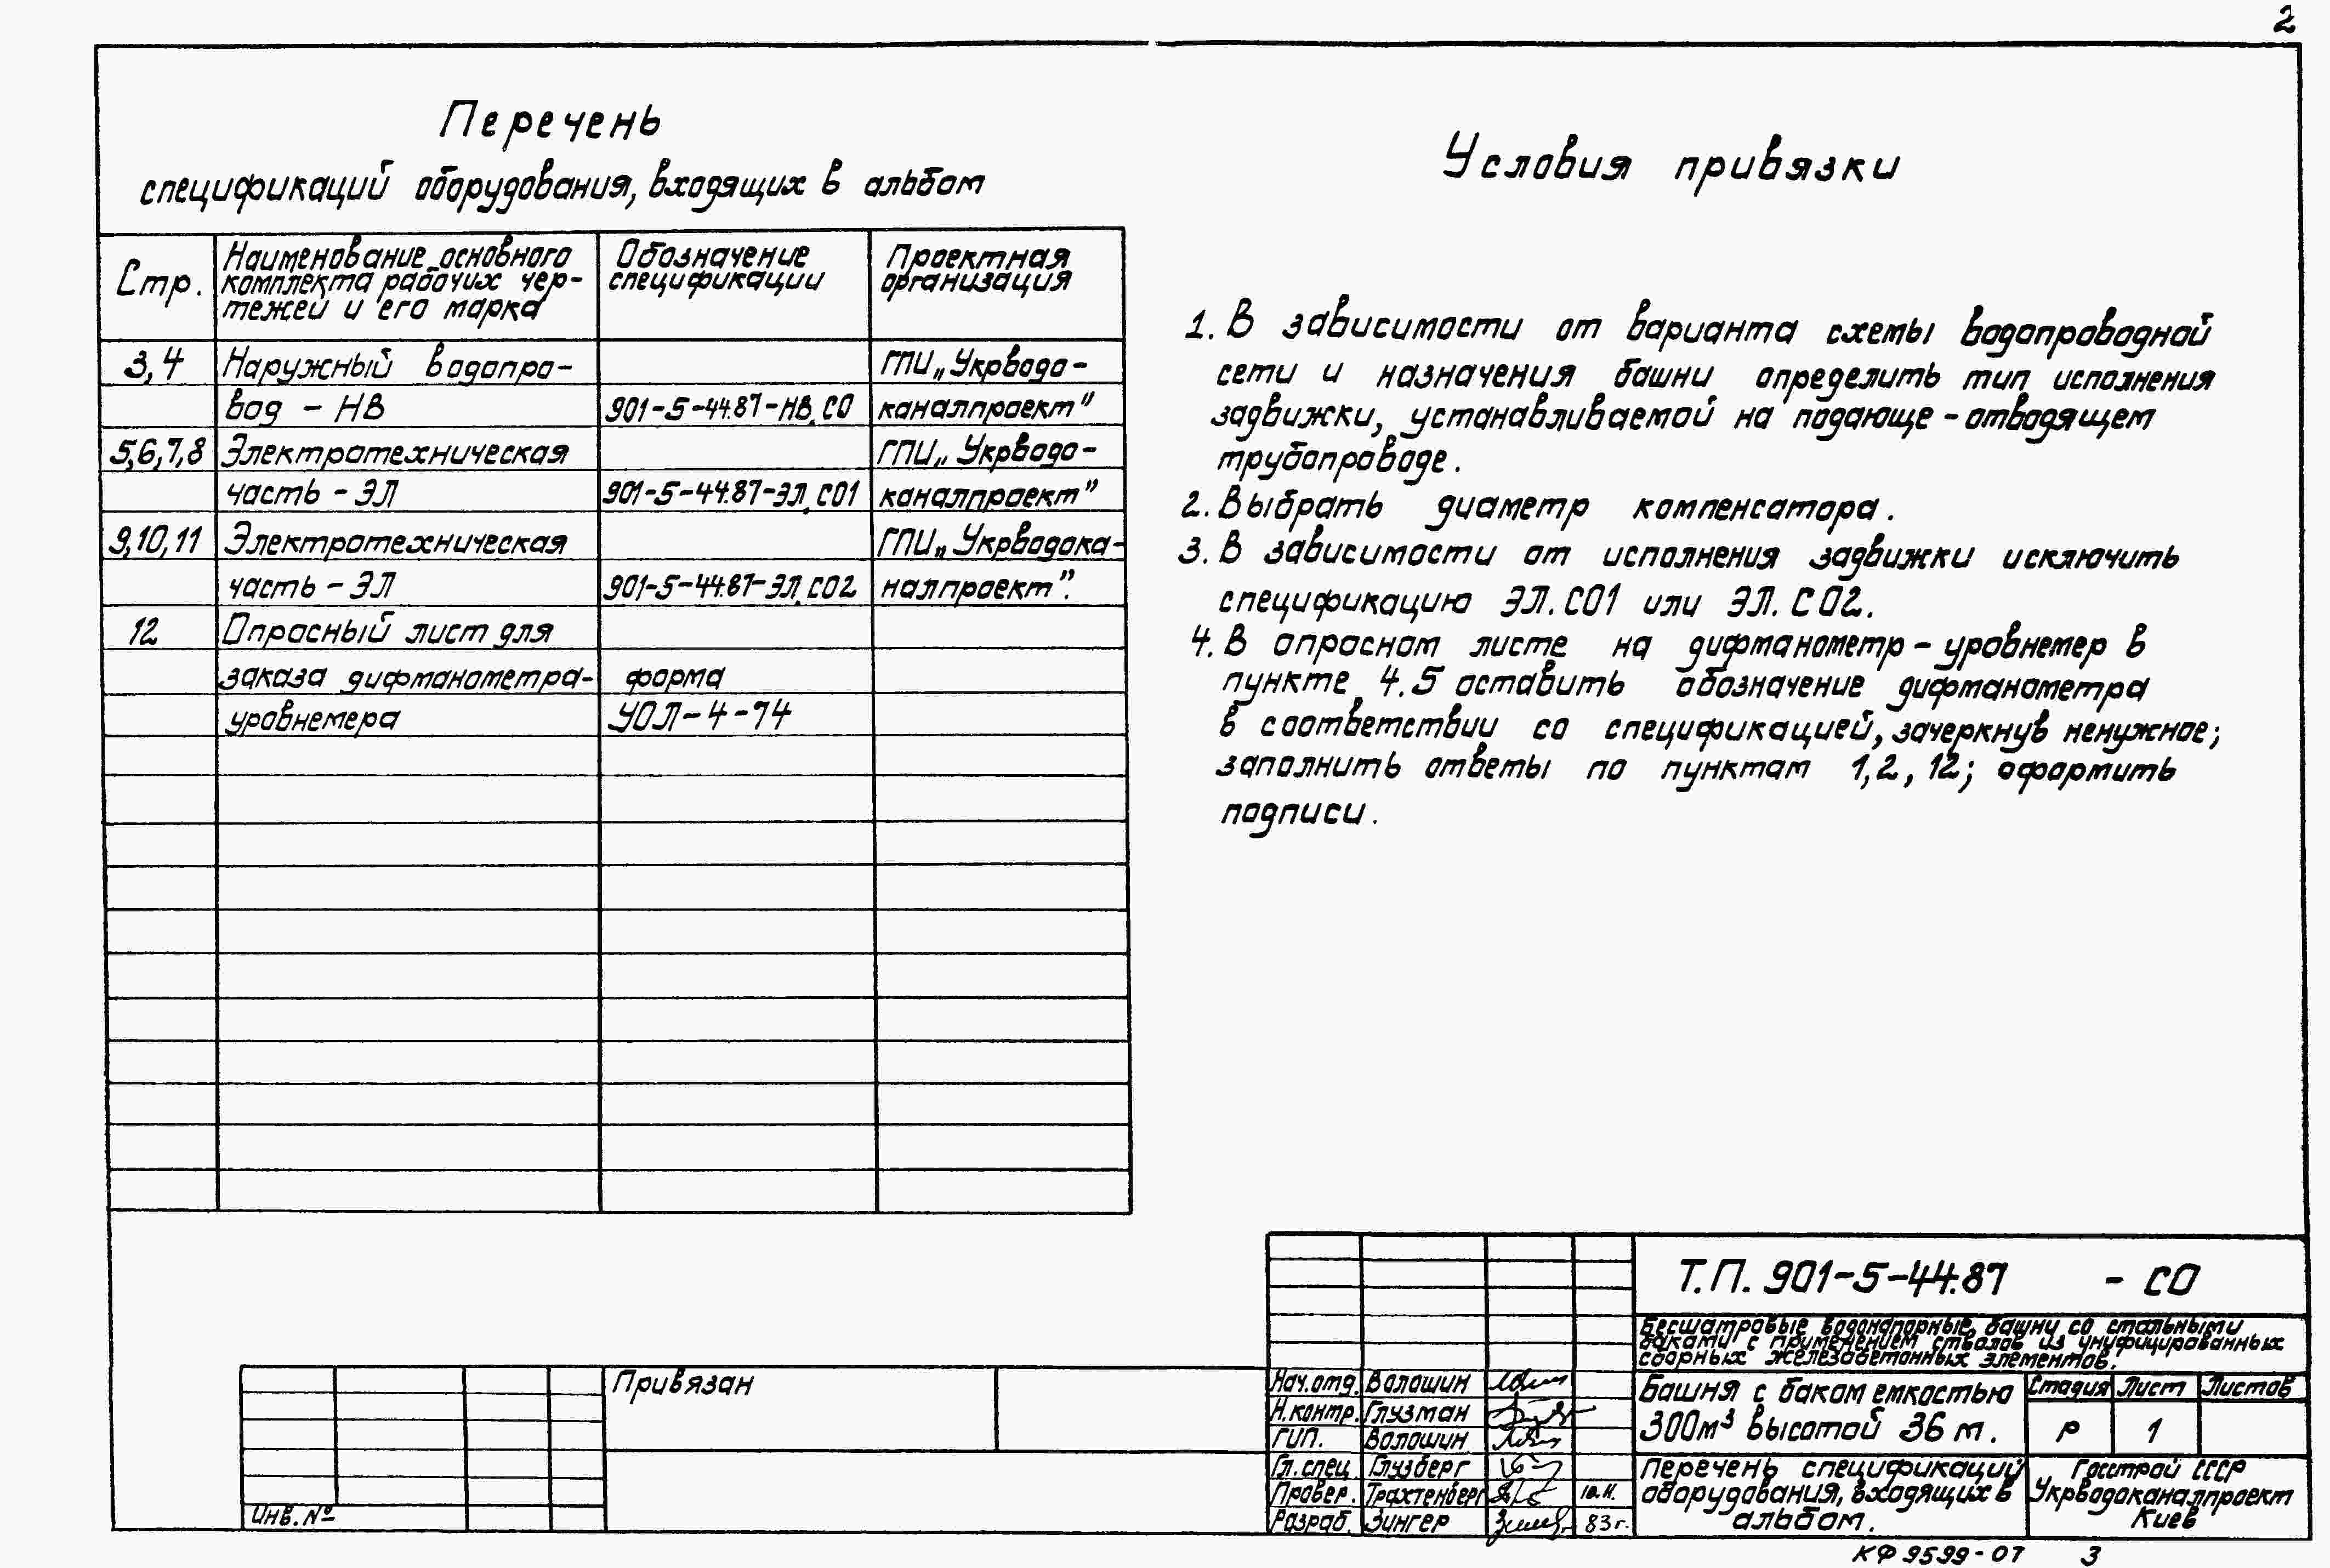 2
Перечень
спецификаций оборудования, входящих в альбом
Стр.
Наименование основного
комплекта рабочих чер-
тежей и его марка
Обозначение
спецификации
Проектная
организация
3,4 Наружный водопро- ГПИ „Укрводо-
вод - НВ 901-5-44.87-НВ.СО каналпроект"
5,6,7,8 Электротехническая ГПИ „Укрводо-
часть - ЭЛ 901-5-44.87-ЭЛ.СО1 каналпроект"
9,10,11 Электротехническая ГПИ „Укрводока-
часть - ЭЛ 901-5-44.87-ЭЛ.СО2 налпроект".
12 Опросный лист для
заказа дифманометра- форма
уровнемера УОЛ-4-74
Условия привязки
1. В зависимости от варианта схемы водопроводной
сети и назначения башни определить тип исполнения
задвижки, устанавливаемой на подающе-отводящем
трубопроводе.
2. Выбрать диаметр компенсатора.
3. В зависимости от исполнения задвижки исключить
спецификацию ЭЛ.СО1 или ЭЛ.СО2.
4. В опросном листе на дифманометр-уровнемер в
пункте 4.5 оставить обозначение дифманометра
в соответствии со спецификацией, зачеркнув ненужное;
заполнить ответы по пунктам 1,2,12; оформить
подписи.
Привязан
Инв. №
Т.П. 901-5-44.87 - СО
Бесшатровые водонапорные башни со стальными
баками с применением стволов из унифицированных
сборных железобетонных элементов.
Нач.отд. Волошин
Н.контр. Глузман
ГИП. Волошин
Гл.спец. Глузберг
Провер. Трахтенберг
Разраб. Зингер 83г.
Башня с баком емкостью
300м³ высотой 36 м.
Стадия Лист Листов
Р 1
Перечень спецификаций
оборудования, входящих в
альбом.
Госстрой СССР
Укрводоканалпроект
Киев
КФ 9599-07 3